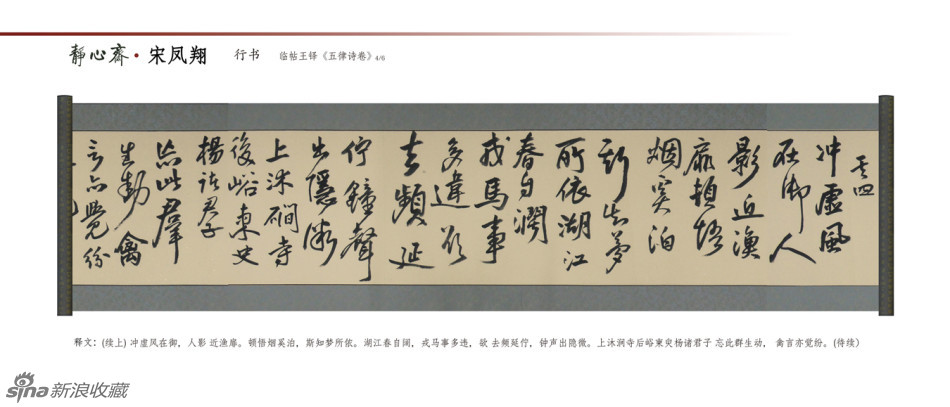 静心斋·宋凤翔 行书 临帖王铎《五律诗卷》4/6
其四
冲虚风
在御人
影近渔
扉顿悟
烟奚泊
斯知梦
所依湖江
春自阔
戎马事
多违欲
去频延
佇鐘聲
出隱微
上沐磵寺
後峪柬史
楊諸君子
忘此羣
生動禽
言亦覺紛
释文：(续上) 冲虚风在御，人影 近渔扉。顿悟烟奚泊，斯知梦所依。湖江春自阔，戎马事多违，欲 去频延伫，钟声出隐微。上沐涧寺后峪柬史杨诸君子 忘此群生动， 禽言亦觉纷。(待续)
sina新浪收藏